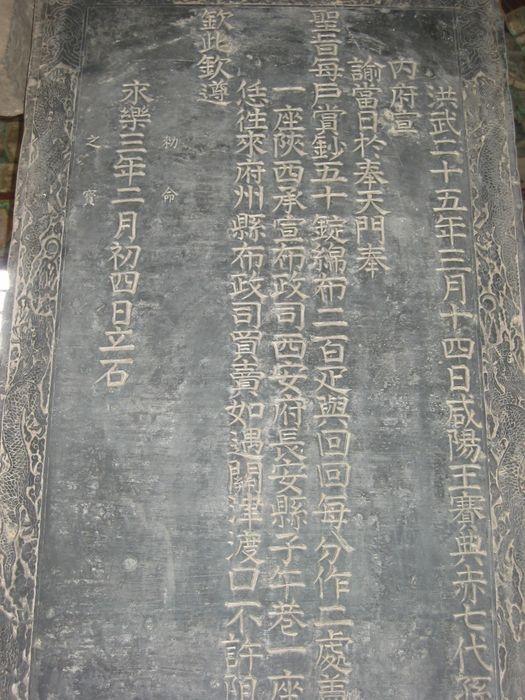 洪武二十五年三月十四日咸陽王賽典赤七代
內府宣
諭當日於奉天門奉
聖旨每戶賞鈔五十錠綿布二百疋與回回每分作二處蓋
一座陝西承宣布政司西安府長安縣子午巷一座
恁往來府州縣布政司買賣如遇關津渡口不許阻
欽此欽遵
勑命
之寶
永樂三年二月初四日立石